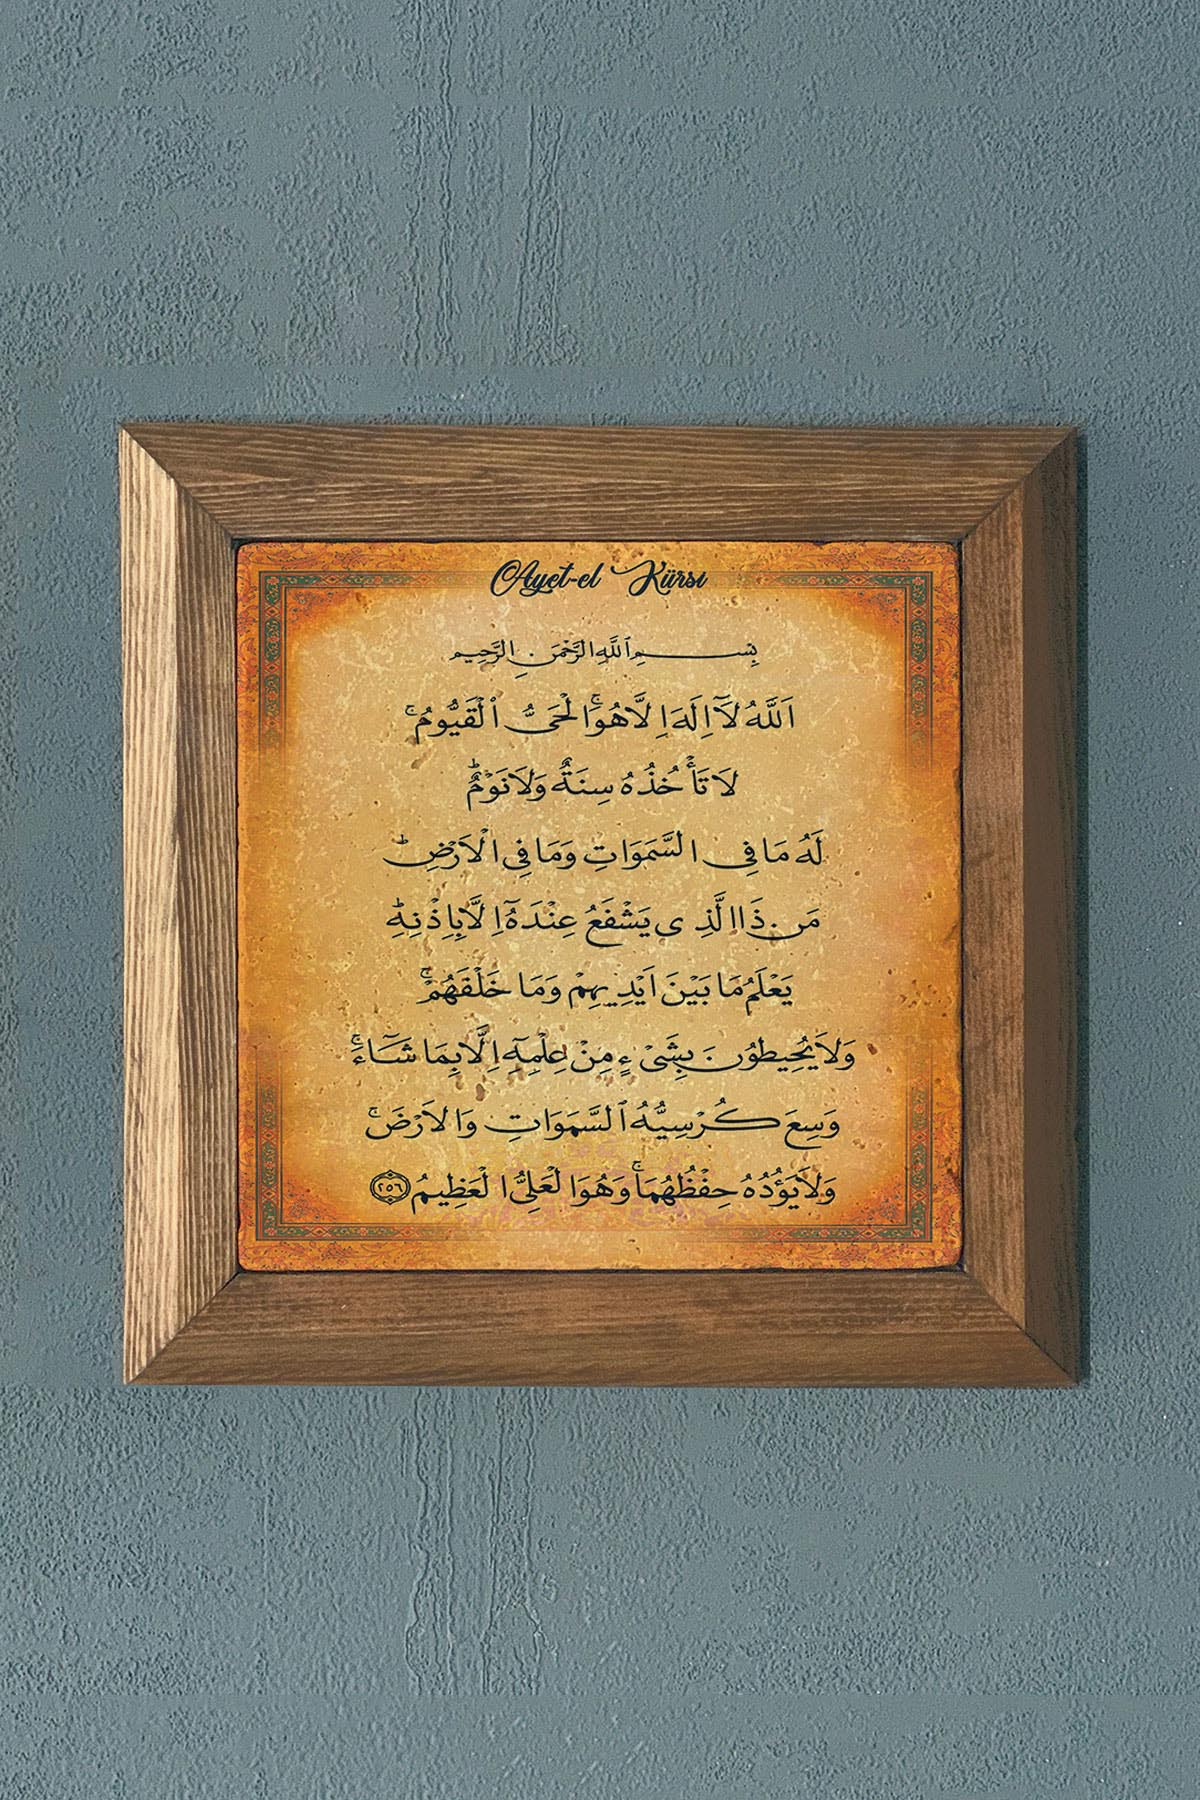 Ayet-el Kürsi
بِسْــــــمِ ٱللَّهِ الرَّحْمَنِ الرَّحِيمِ
اَللَّهُ لَٓا اِلَهَ اِلَّا هُوَۚ الْحَىُّ ٱلْقَيُّومُۚ
لَا تَأْخُذُهُ سِنَةٌ وَلَا نَوْمٌؕ
لَهُ مَا فِى السَّمَوَاتِ وَمَا فِى الْاَرْضِؕ
مَن ذَا الَّذِى يَشْفَعُ عِنْدَهُٓ اِلَّا بِاِذْنِهِؕ
يَعْلَمُ مَا بَيْنَ اَيْدِيهِمْ وَمَا خَلْفَهُمْۚ
وَلَا يُحِيطُونَ بِشَىْءٍ مِنْ عِلْمِهِٓ اِلَّا بِمَا شَٓاءَۚ
وَسِعَ كُرْسِيُّهُ ٱلسَّمَوَاتِ وَالْاَرْضَۚ
وَلَا يَؤُدُهُ حِفْظُهُمَاۚ وَهُوَ الْعَلِىُّ الْعَظِيمُ ٢٥٦